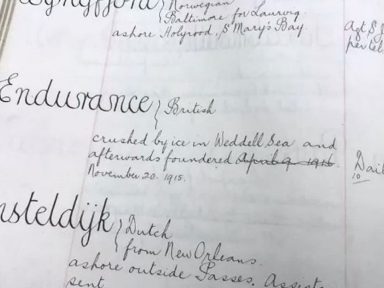 Norwegian
Baltimore for Laurvig
ashore Holyrood, St Mary's Bay
Endurance } British
crushed by ice in Weddell Sea and
afterwards foundered April 9 1916.
November 20. 1915.
Dutch
from New Orleans.
ashore outside Passes.
sent